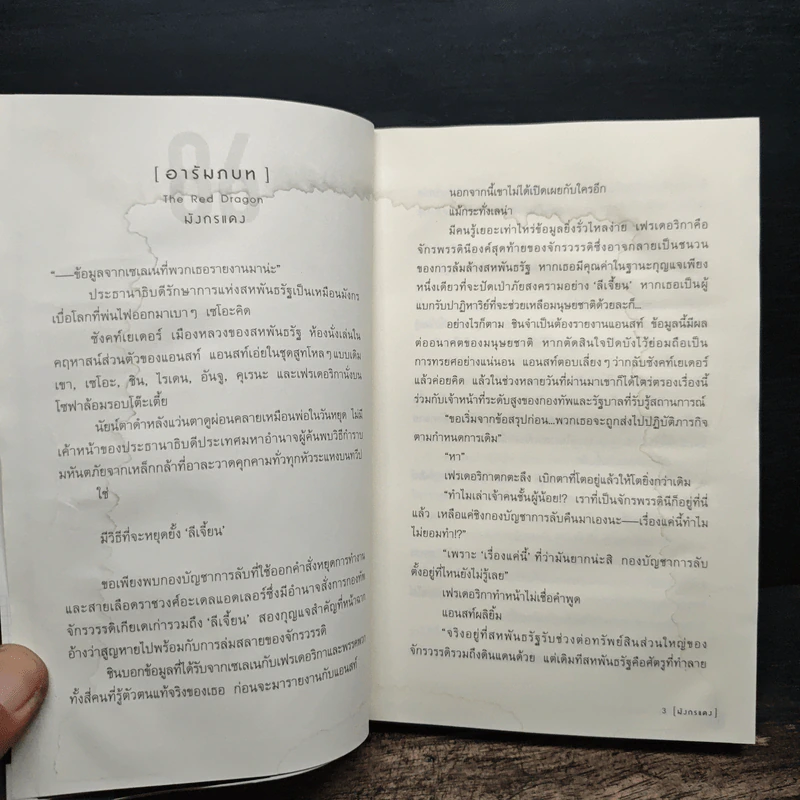 06
[ อารัมภบท ]
The Red Dragon
มังกรแดง
“──ข้อมูลจากเซเลเน่ที่พวกเธอรายงานมาน่ะ”
ประธานาธิบดีรักษาการแห่งสหพันธรัฐเป็นเหมือนมังกร
เบื่อโลกที่พ่นไฟออกมาเบาๆ เซโอะคิด
ซังค์ท์เยเดอร์ เมืองหลวงของสหพันธรัฐ ห้องนั่งเล่นใน
คฤหาสน์ส่วนตัวของแอนสท์ แอนสท์เอ่ยในชุดสูทโหลๆ แบบเดิม
เขา, เซโอะ, ชิน, ไรเดน, อันจู, คุเรนะ และเฟรเดอริกานั่งบน
โซฟาล้อมรอบโต๊ะเตี้ย
นัยน์ตาดำหลังแว่นตาดูผ่อนคลายเหมือนพ่อในวันหยุด ไม่มี
เค้าหน้าของประธานาธิบดีประเทศมหาอำนาจผู้ค้นพบวิธีกำราบ
มหันตภัยจากเหล็กกล้าที่อาละวาดคุกคามทั่วทุกหัวระแหงบนทวีป
ใช่
มีวิธีที่จะหยุดยั้ง ‘ลีเจี้ยน’
ขอเพียงพบกองบัญชาการลับที่ใช้ออกคำสั่งหยุดการทำงาน
และสายเลือดราชวงศ์อะเดลแอดเลอร์ซึ่งมีอำนาจสั่งการกองทัพ
จักรวรรดิเกียเดเก่ารวมถึง ‘ลีเจี้ยน’ สองกุญแจสำคัญที่หน้าฉาก
อ้างว่าสูญหายไปพร้อมกับการล่มสลายของจักรวรรดิ
ชินบอกข้อมูลที่ได้รับจากเซเลเน่กับเฟรเดอริกาและพรรคพวก
ทั้งสี่คนที่รู้ตัวตนแท้จริงของเธอ ก่อนจะมารายงานกับแอนสท์
นอกจากนี้เขาไม่ได้เปิดเผยกับใครอีก
แม้กระทั่งเลน่า
มีคนรู้เยอะเท่าไหร่ข้อมูลยิ่งรั่วไหลง่าย เฟรเดอริกาคือ
จักรพรรดินีองค์สุดท้ายของจักรวรรดิซึ่งอาจกลายเป็นชนวน
ของการล้มล้างสหพันธรัฐ หากเธอมีคุณค่าในฐานะกุญแจเพียง
หนึ่งเดียวที่จะปัดเป่าภัยสงครามอย่าง ‘ลีเจี้ยน’ หากเธอเป็นผู้
แบกรับปาฏิหาริย์ที่จะช่วยเหลือมนุษยชาติด้วยละก็...
อย่างไรก็ตาม ชินจำเป็นต้องรายงานแอนสท์ ข้อมูลนี้มีผล
ต่ออนาคตของมนุษยชาติ หากตัดสินใจปิดบังไว้ย่อมถือเป็น
การทรยศอย่างแน่นอน แอนสท์ตอบเลี่ยงๆ ว่ากลับซังค์ทเยเดอร์
แล้วค่อยคิด แล้วในช่วงหลายวันที่ผ่านมาเขาก็ได้ไตร่ตรองเรื่องนี้
ร่วมกับเจ้าหน้าที่ระดับสูงของกองทัพและรัฐบาลที่รับรู้สถานการณ์
“ขอเริ่มจากข้อสรุปก่อน...พวกเธอจะถูกส่งไปปฏิบัติภารกิจ
ตามกำหนดการเดิม”
“หา”
เฟรเดอริกาตกตะลึง เบิกตาที่โตอยู่แล้วให้โตยิ่งกว่าเดิม
“ทำไมเล่าเจ้าคนชั้นผู้น้อย!? เราที่เป็นจักรพรรดินีก็อยู่ที่นี่
แล้ว เหลือแค่ชิงกองบัญชาการลับคืนมาเองนะ──เรื่องแค่นี้ทำไม
ไม่ยอมทำ!?”
“เพราะ ‘เรื่องแค่นี้’ ที่ว่ามันยากน่ะสิ กองบัญชาการลับ
ตั้งอยู่ที่ไหนยังไม่รู้เลย”
เฟรเดอริกาทำหน้าไม่เชื่อคำพูด
แอนสท์ผลิยิ้ม
“จริงอยู่ที่สหพันธรัฐรับช่วงต่อทรัพย์สินส่วนใหญ่ของ
จักรวรรดิรวมถึงดินแดนด้วย แต่เดิมทีสหพันธรัฐคือศัตรูที่ทำลาย
3 [มังกรแดง]